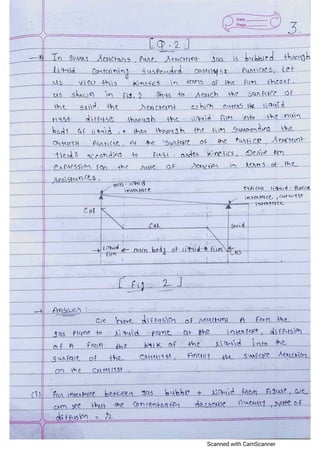 Date
Page
3.
[Q.2]
→ In slurry reactors, Pure reactant gas is bubbled through
liquid containing suspended catalyst particles, Let
us view this kinetics in terms of the film theory.
as shown in Fig. 2 Thus to reach the surface of
the solid. the reactant which enters the liquid
must diffuse through the liquid film into the main
body of liquid, & then through the film surrounding the
catalyst particle. At the surface of the Particle, reactant
yields according to first order kinetics. Derive an
expression for the rate of reaction in terms of the
resistances.
gas-liquid
interface
Typical liquid-
interface, catalyst
interface
CaL
solid
liquid
film
main body of liquid
film
CAS
[Fig: 2]
→ Answer :
we have diffusion of reactant A from the
gas to liquid at the interface, diffusion
of A from the bulk of the liquid into the
surface of the catalyst, finally the surface reaction
on the catalyst.
(1) For interface between gas bubble & liquid from Figure, we
can see that the concentration decrease linearly, rate of
diffusion =
Scanned with CamScanner